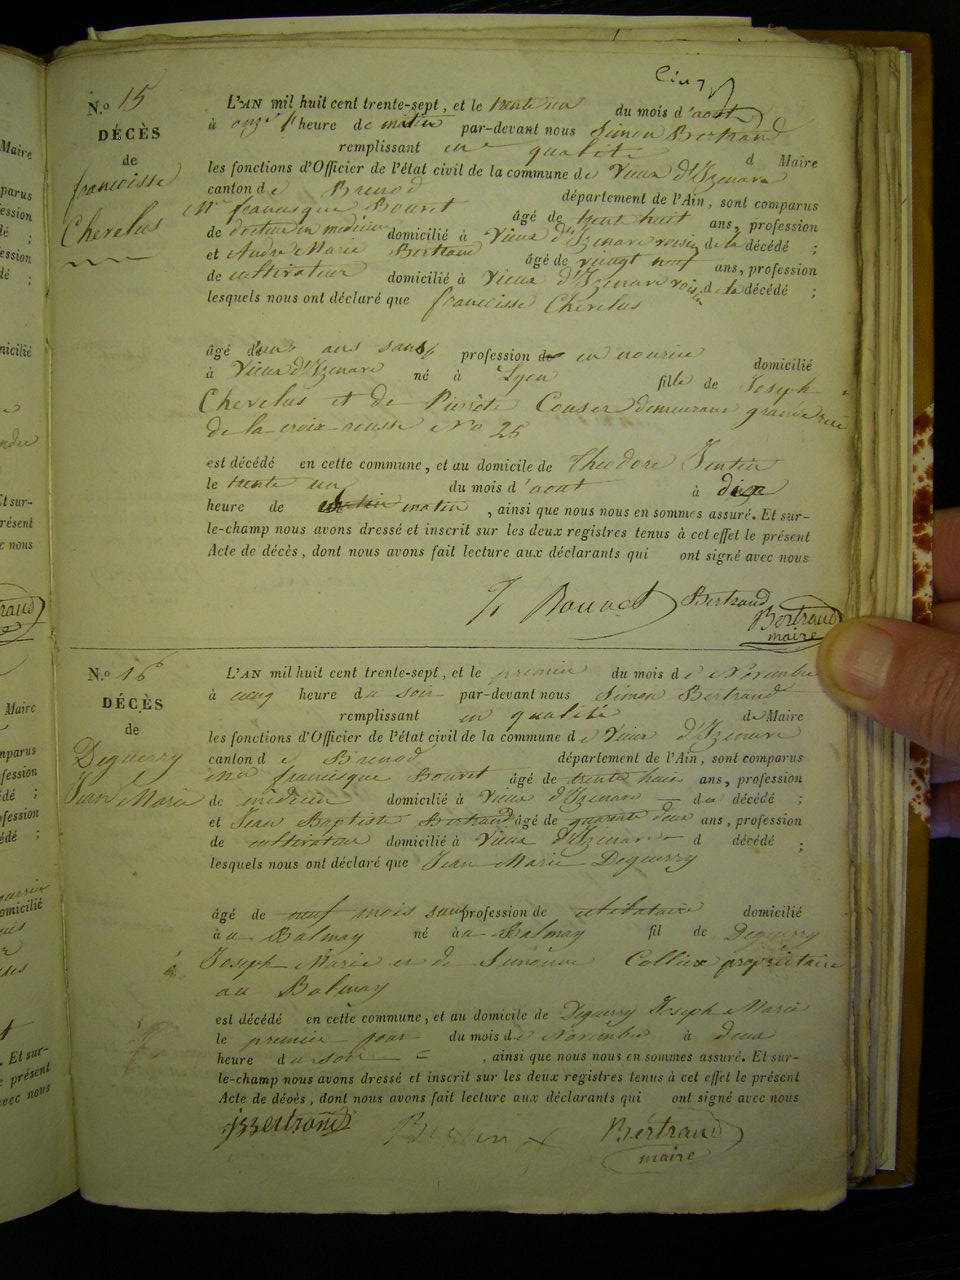 Cinq
N.o 15
DÉCÈS
de
francoisse
Cherelus
L'AN mil huit cent trente-sept, et le trente un du mois d'aout
à onze heure de matin par-devant nous Simon Bertrand
remplissant en qualité d Maire
les fonctions d'Officier de l'état civil de la commune de Vieux d'Izenave
canton de Brenod département de l'Ain, sont comparus
Mr francisque Bouvet âgé de trent huit ans, profession
de docteur en médecin domicilié à Vieux d'Izenave voisin de la décédé ;
et André Marie Bertrand âgé de vingt neuf ans, profession
de cultivateur domicilié à Vieux d'Izenave voisin de la décédé ;
lesquels nous ont déclaré que francoisse Cherelus
âgé d'un ans sans profession de en nourice domicilié
à Vieux d'Izenave né à Lyon fille de Joseph
Cherelus et de Pierrete Couser demeurant grande rue
de la croix rousse No 25
est décédé en cette commune, et au domicile de Théodore
le trente un du mois d'aout à dix
heure de matin , ainsi que nous nous en sommes assuré. Et sur-
le-champ nous avons dressé et inscrit sur les deux registres tenus à cet effet le présent
Acte de décès, dont nous avons fait lecture aux déclarants qui ont signé avec nous
Bouvet Bertrand
Bertrand
maire
N.o 16
DÉCÈS
de
Deguerry
Jean Marie
L'AN mil huit cent trente-sept, et le premier du mois de Novembre
à cinq heure du soir par-devant nous Simon Bertrand
remplissant en qualité de Maire
les fonctions d'Officier de l'état civil de la commune de Vieux d'Izenave
canton de Brenod département de l'Ain, sont comparus
Mr francisque Bouvet âgé de trente huit ans, profession
de médecin domicilié à Vieux d'Izenave du décédé ;
et Jean Baptiste Bertrand âgé de quarante deux ans, profession
de cultivateur domicilié à Vieux d'Izenave d décédé ;
lesquels nous ont déclaré que Jean Marie Deguerry
âgé de neuf mois sans profession de célibataire domicilié
à au Balmay né à au Balmay fil de Deguerry
Joseph Marie et de Collier propriétaire
au Balmay
est décédé en cette commune, et au domicile de Deguerry Joseph Marie
le premier jour du mois de Novembre à deux
heure du soir , ainsi que nous nous en sommes assuré. Et sur-
le-champ nous avons dressé et inscrit sur les deux registres tenus à cet effet le présent
Acte de décès, dont nous avons fait lecture aux déclarants qui ont signé avec nous
JBBertrand Bertrand
maire